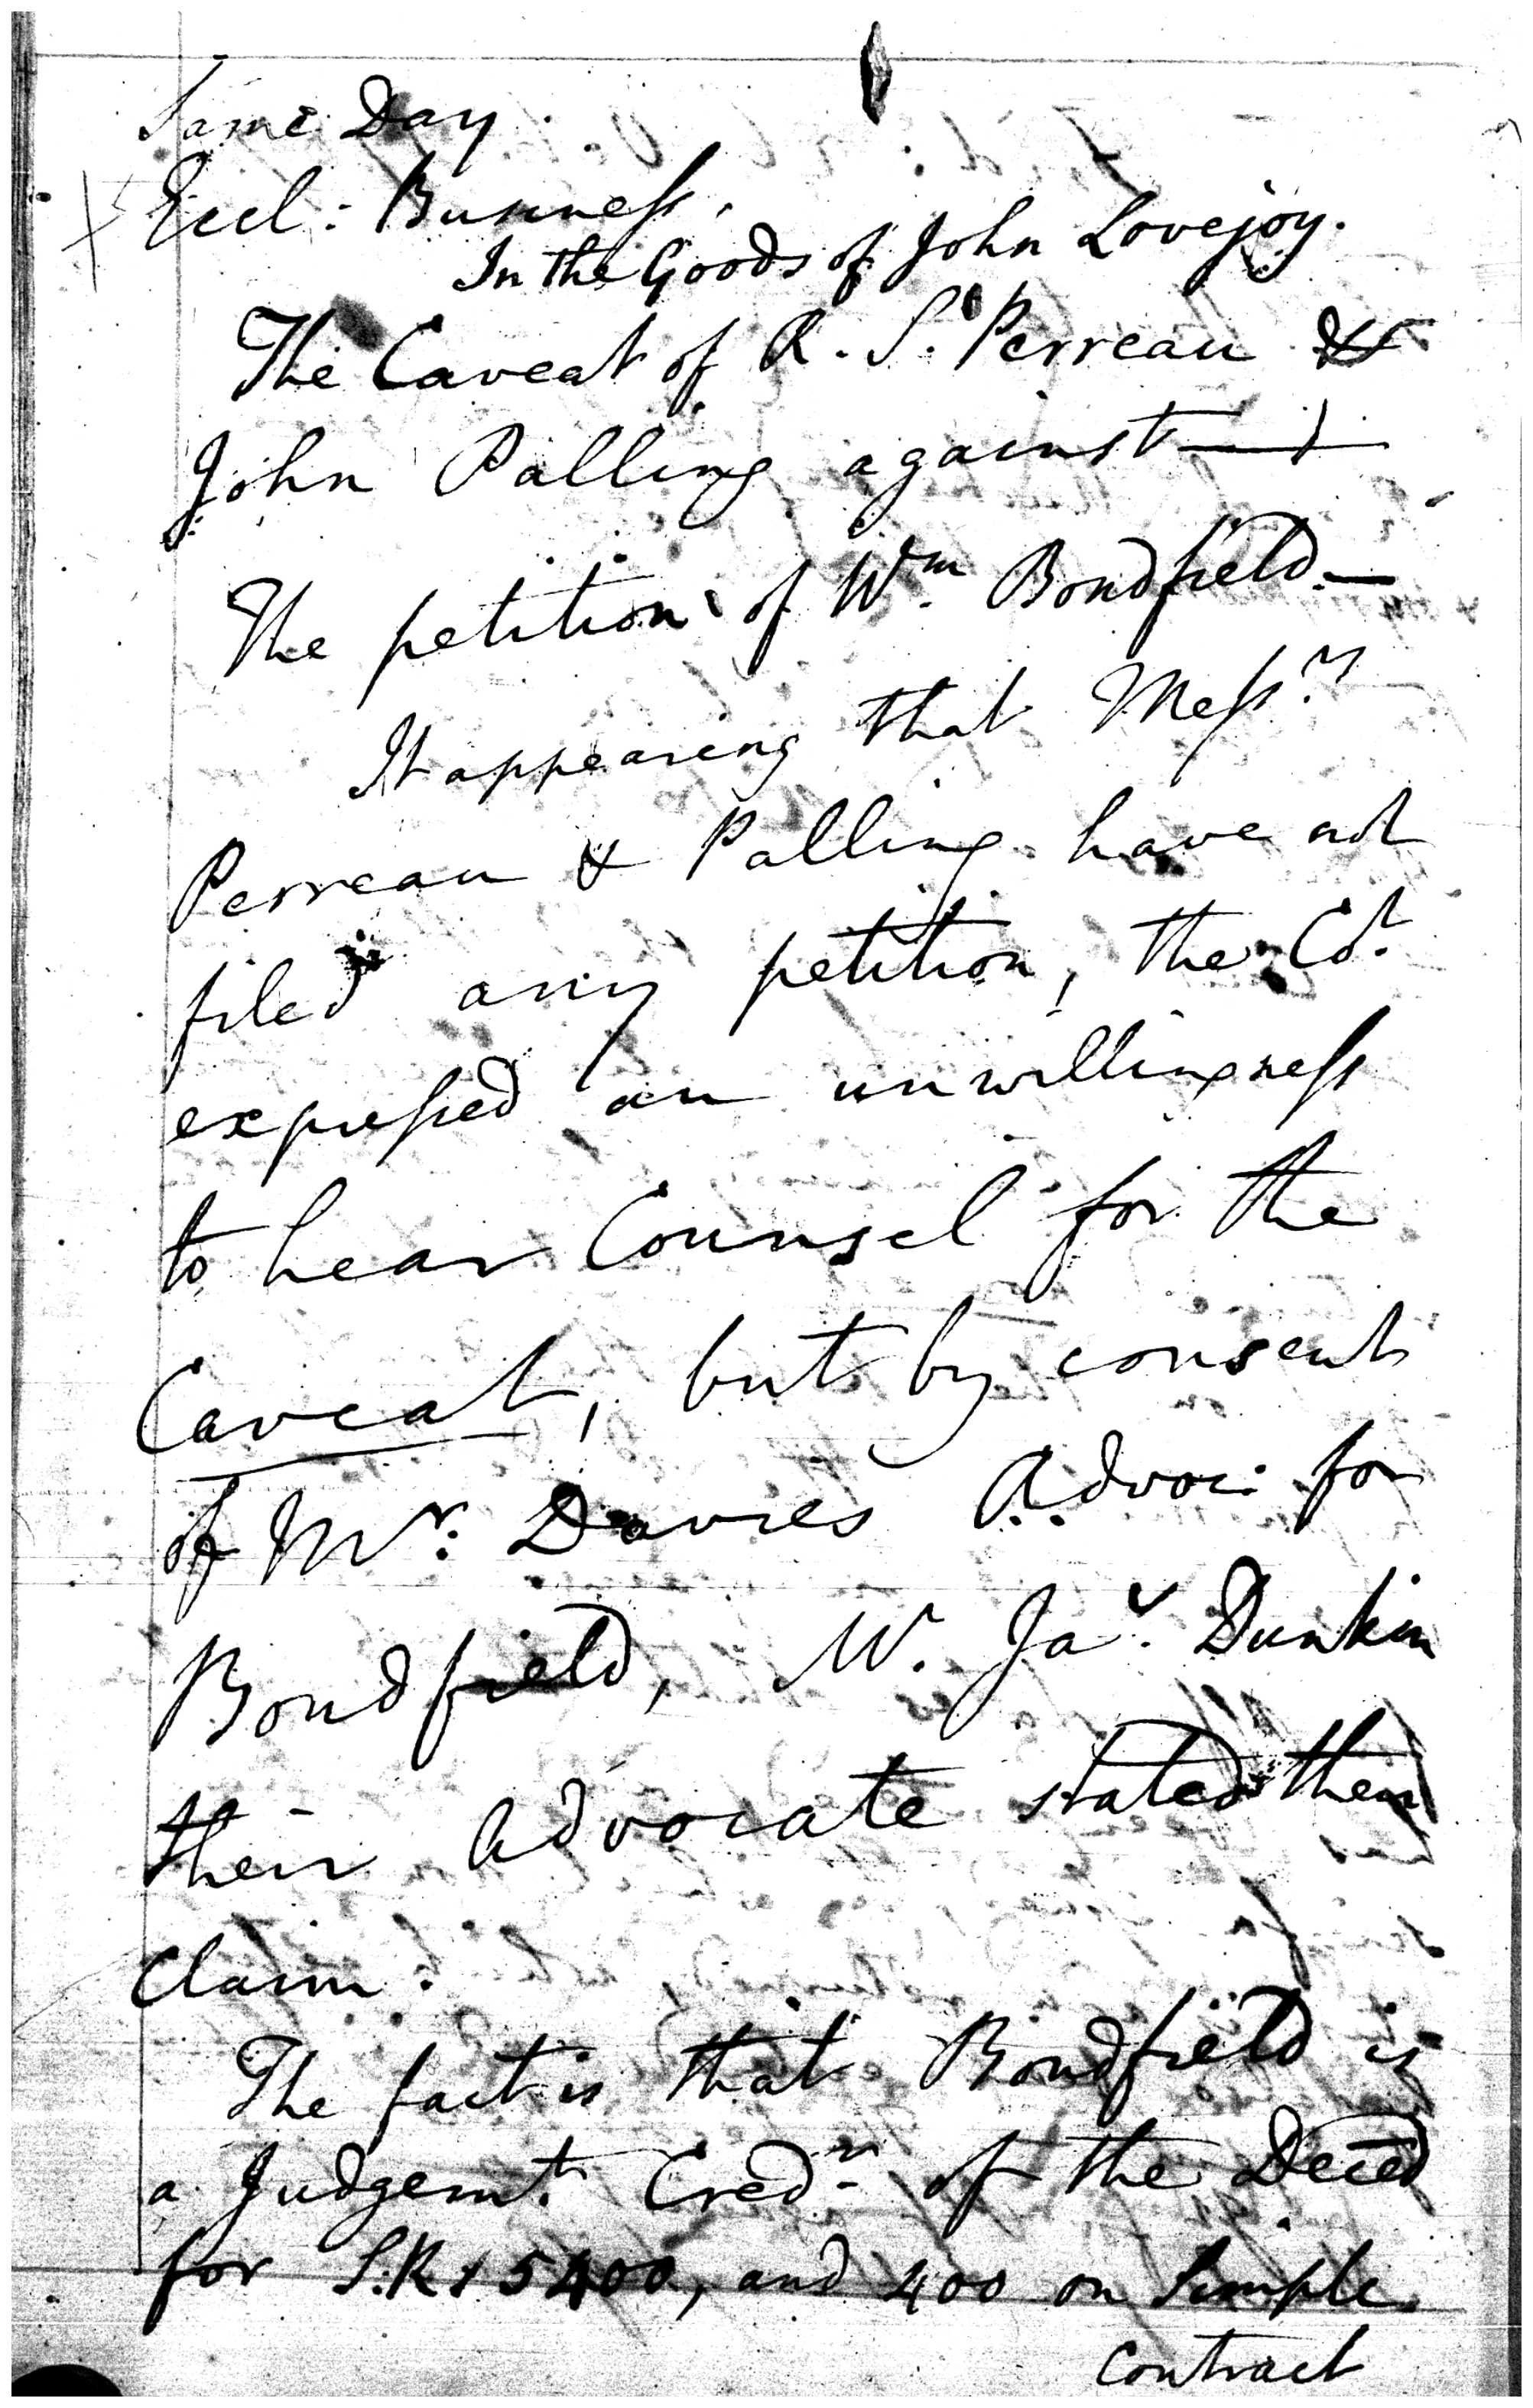 Same Day.
Eccl: Business.
In the Goods of John Lovejoy.
The Caveat of R. S. Perreau &
John Palling against —
The petition of Wm. Bondfield. —
It appearing that Messrs
Perreau & Palling have not
filed any petition, the Cot.
expressed an unwillingness
to hear Counsel for the
Caveat, but by consent
of Mr: Davies Advoc: for
Bondfield, W. Jas. Dunkin
their Advocate stated their
Claim.
The fact is that Bondfield is
a Judgemt. Credr. of the Deced
for S.Rs 5400, and 400 on Simple
Contract